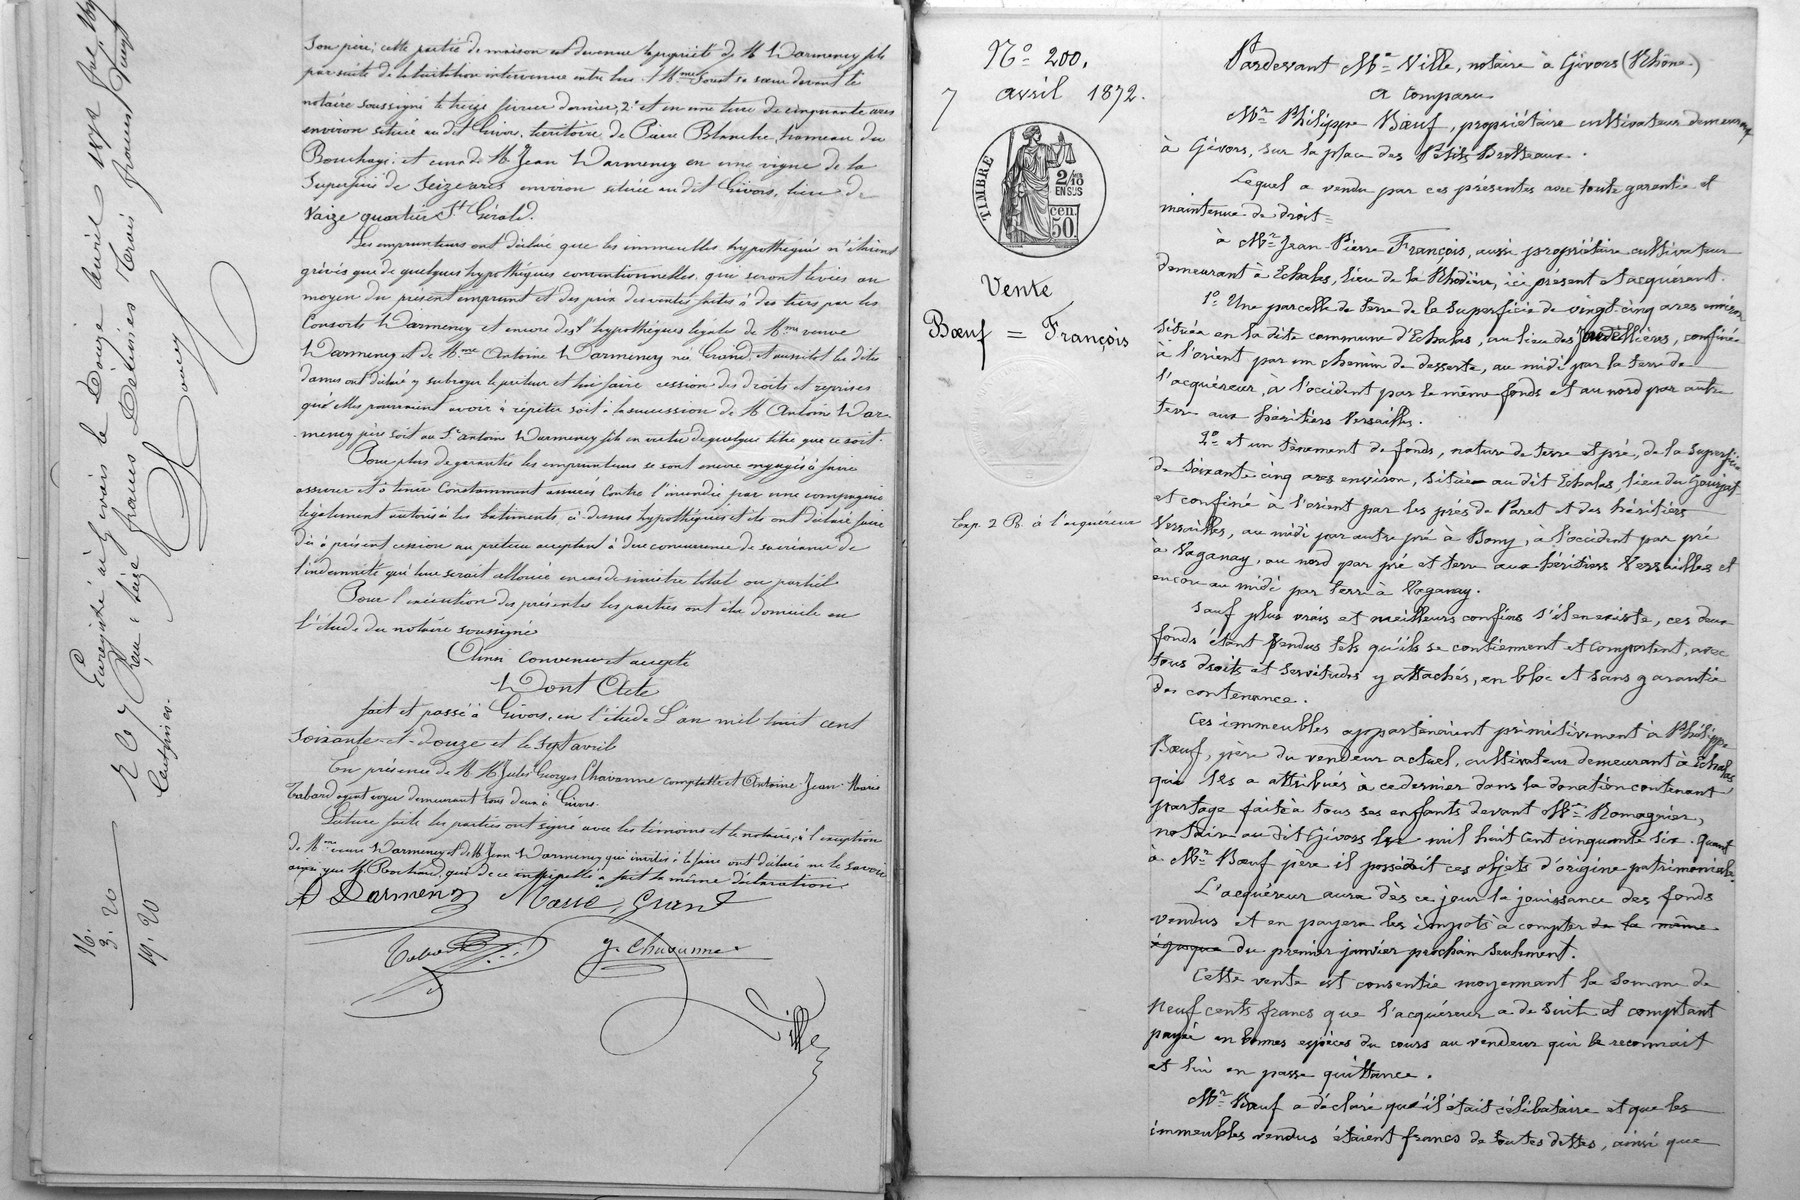 son père; cette partie de maison est devenue la propriété de M Darmency fils
par suite de la licitation intervenue entre lui et Mme Grand sa sœur devant le
notaire soussigné le treize février dernier, 2° et en une terre de cinquante ares
environ située au dit Givors, territoire de Pierre Blanche, hameau du
Bouchage; et ceux de M. Jean Darmency en une vigne de la
superficie de seize ares environ située au dit Givors, lieu de
Vaize quartier St Gérald.
Les emprunteurs ont déclaré que les immeubles hypothéqués n'étaient
grévés que de quelques hypothèques conventionnelles, qui seront levées au
moyen du présent emprunt et des prix de ventes faites à des tiers par les
Consorts Darmency et encore des l'hypothèques légales de Mme veuve
Darmency et de Mme Antoine Darmency née Grand, et aussitôt les dites
dames ont déclaré y subroger le prêteur et lui faire cession des droits et reprises
qu'elles pourraient avoir à répéter soit à la succession de M Antoine Dar-
mency père soit au Sr Antoine Darmency fils en vertu de quelque titre que ce soit.
Pour plus de garantie les emprunteurs se sont encore engagés à faire
assurer et à tenir constamment assurés contre l'incendie par une compagnie
légalement autorisée les bâtiments ci-dessus hypothéqués et ils ont déclaré faire
dès à présent cession au prêteur acceptant à due concurrence de sa créance de
l'indemnité qui leur serait allouée en cas de sinistre total ou partiel
Pour l'exécution des présentes les parties ont élu domicile en
l'étude du notaire soussigné
Ainsi convenu et accepté
Dont Acte
fait et passé à Givors, en l'étude L'an mil huit cent
soixante-et-douze et le sept avril
En présence de M M Jules Georges Chavanne comptable et Antoine Jean Marie
Tabard agent voyer demeurant tous deux à Givors.
Lecture faite les parties ont signé avec les témoins et le notaire, à l'exception
de Mme veuve Darmency et de M Jean Darmency qui invités à le faire ont déclaré ne le savoir
ainsi que M. , qui de ce interpellé a fait la même déclaration
A Darmency Marie Grand
Tabard
J. Chavanne
Ville
Enregistré à Givors le Douze avril 1872
Reçu: seize francs Décimes trois francs vingt
Centimes.
16.
3. 20
19. 20
N° 200.
7 avril 1872.
TIMBRE
2/10
EN SUS
50 cen.
Vente
Bœuf = François
Exp. 2 R. à l'acquéreur
Pardevant Me Ville, notaire à Givors (Rhône.)
a comparu
Mr Philippe Bœuf, propriétaire cultivateur demeurant
à Givors, sur la place des Petits Brotteaux.
Lequel a vendu par ces présentes avec toute garantie et
maintenue de droit
à Mr Jean Pierre François, aussi propriétaire cultivateur
demeurant à Echalas, lieu de la Rhodière, ici présent et acquérant.
1° Une parcelle de terre de la superficie de vingt-cinq ares environ
située en la dite commune d'Echalas, au lieu des , confinée
à l'orient par un chemin de desserte, au midi par la terre de
l'acquéreur, à l'occident par le même fonds et au nord par autre
terre aux héritiers Versailles.
2° et un tènement de fonds, nature de terre et pré, de la superficie
de soixante cinq ares environ, située au dit Echalas lieu du
et confiné à l'orient par les prés de Paret et des héritiers
Versailles, au midi par autre pré à Bony, à l'occident par pré
à Vaganay, au nord par pré et terre aux héritiers Versailles et
encore au midi par terre à Vaganay.
Sauf plus vrais et meilleurs confins s'il en existe, ces deux
fonds étant vendus tels qu'ils se contiennent et comportent, avec
tous droits et servitudes y attachés, en bloc et sans garantie
de contenance.
Ces immeubles appartenaient primitivement à Philippe
Bœuf, père du vendeur actuel, cultivateur demeurant à Echalas
que les a attribués à ce dernier dans la donation contenant
partage faite à tous ses enfants devant Me Romagnier,
notaire au dit Givors les mil huit cent cinquante six. Quant
à Mr Bœuf père il possédait ces objets d'origine patrimoniale.
L'acquéreur aura dès ce jour la jouissance des fonds
vendus et en payera les impôts à compter de la même
époque du premier janvier prochain seulement.
Cette vente est consentie moyennant la somme de
neuf cents francs que l'acquéreur a de suite et comptant
payée en bonnes espèces du cours au vendeur qui le reconnait
et lui en passe quittance.
Mr Bœuf a déclaré qu'il était célibataire et que les
immeubles vendus étaient francs de toutes dettes, ainsi que